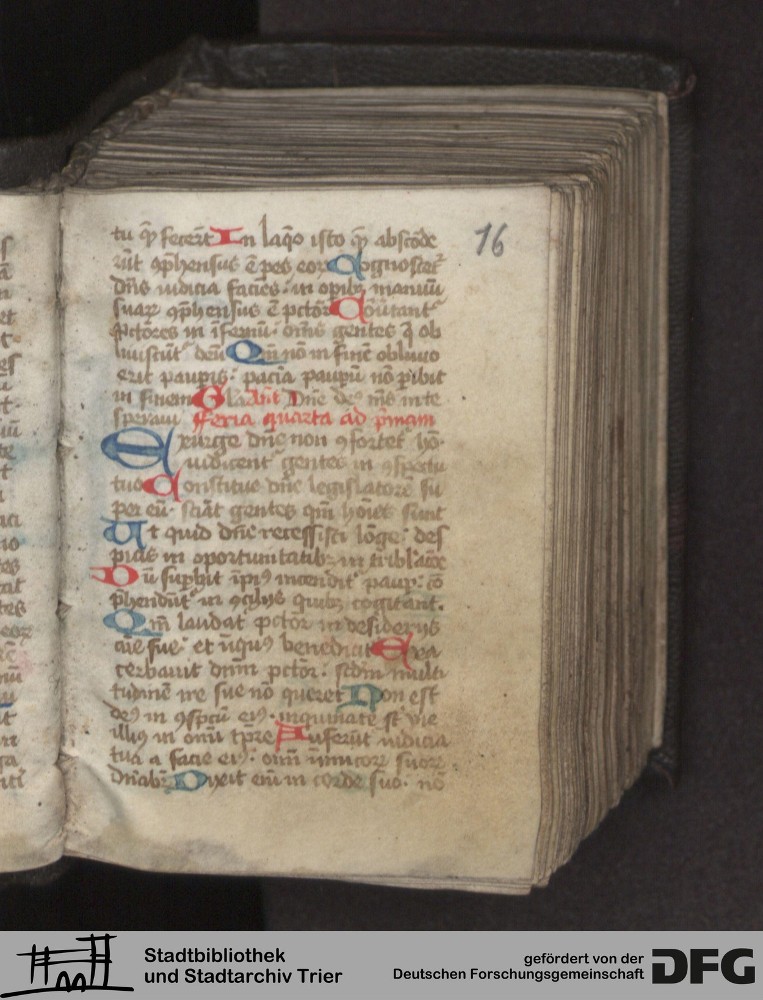 16
tu qͥ fecert̄ In laq̄o isto qͥ abscōde
rūt ꝯp̄hensus ē pes eoꝝ Cognoscet᷑
dn̄s iudicia facies in opibꝫ manuū
suaꝝ ꝯp̄hensus ē pctōr Cōūtant᷑
pctōres in īfernū om̄s gentes q̄ ob
liuiscūt᷑ deū Qm̄ nō in finē obliuio
erit paupis paciā paupū nō pibit
in finem Glā Ant̄ Dn̄e deꝰ mꝰ in te
speraui feria quarta ad p̄mam
Exurge dn̄e non ꝯfortet᷑ hō
iudicent᷑ gentes in ꝯspectu
tuo Constitue dn̄e legislatorē su
per eū sciāt gentes qm̄ hoīes sunt
Ut quid dn̄e recessisti lōge des
picis in oportunitatibꝫ in tribl̄aōe
Dū supbit īpiꝰ incendit᷑ paup cō
p̄hendūt᷑ in ꝯsilijs quibꝫ cogitant
Qm̄ laudat᷑ pctōr in desiderijs
aīe sue et īiqus benedicit᷑ Exa
cerbauit dn̄m pctōr scdm̄ multi
tudinē ire sue nō queret Non est
deꝰ in ꝯspcū eiꝰ inquinate st̄ vie
illiꝰ in omī tp̄re Auferūt᷑ iudicia
tua a facie eiꝰ om̄ inimicoꝝ suoꝝ
dn̄abit᷑ Dixit em̄ in corde suo nō
Stadtbibliothek
und Stadtarchiv Trier
gefördert von der
Deutschen Forschungsgemeinschaft
DFG